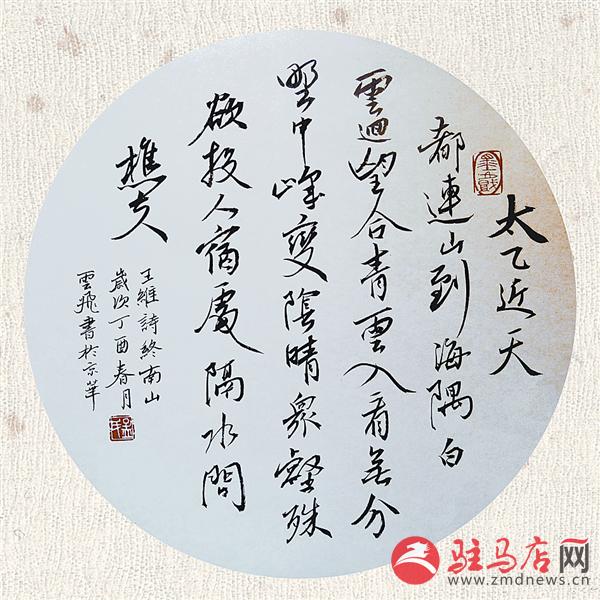 太乙近天
都連山到海隅白
雲迴望合青雲入看無分
野中峰變陰晴衆壑殊
欲投人宿處隔水問
樵夫
王維詩終南山
歲次丁酉春月
雲飛書於京華
驻马店网
www.zmdnews.cn